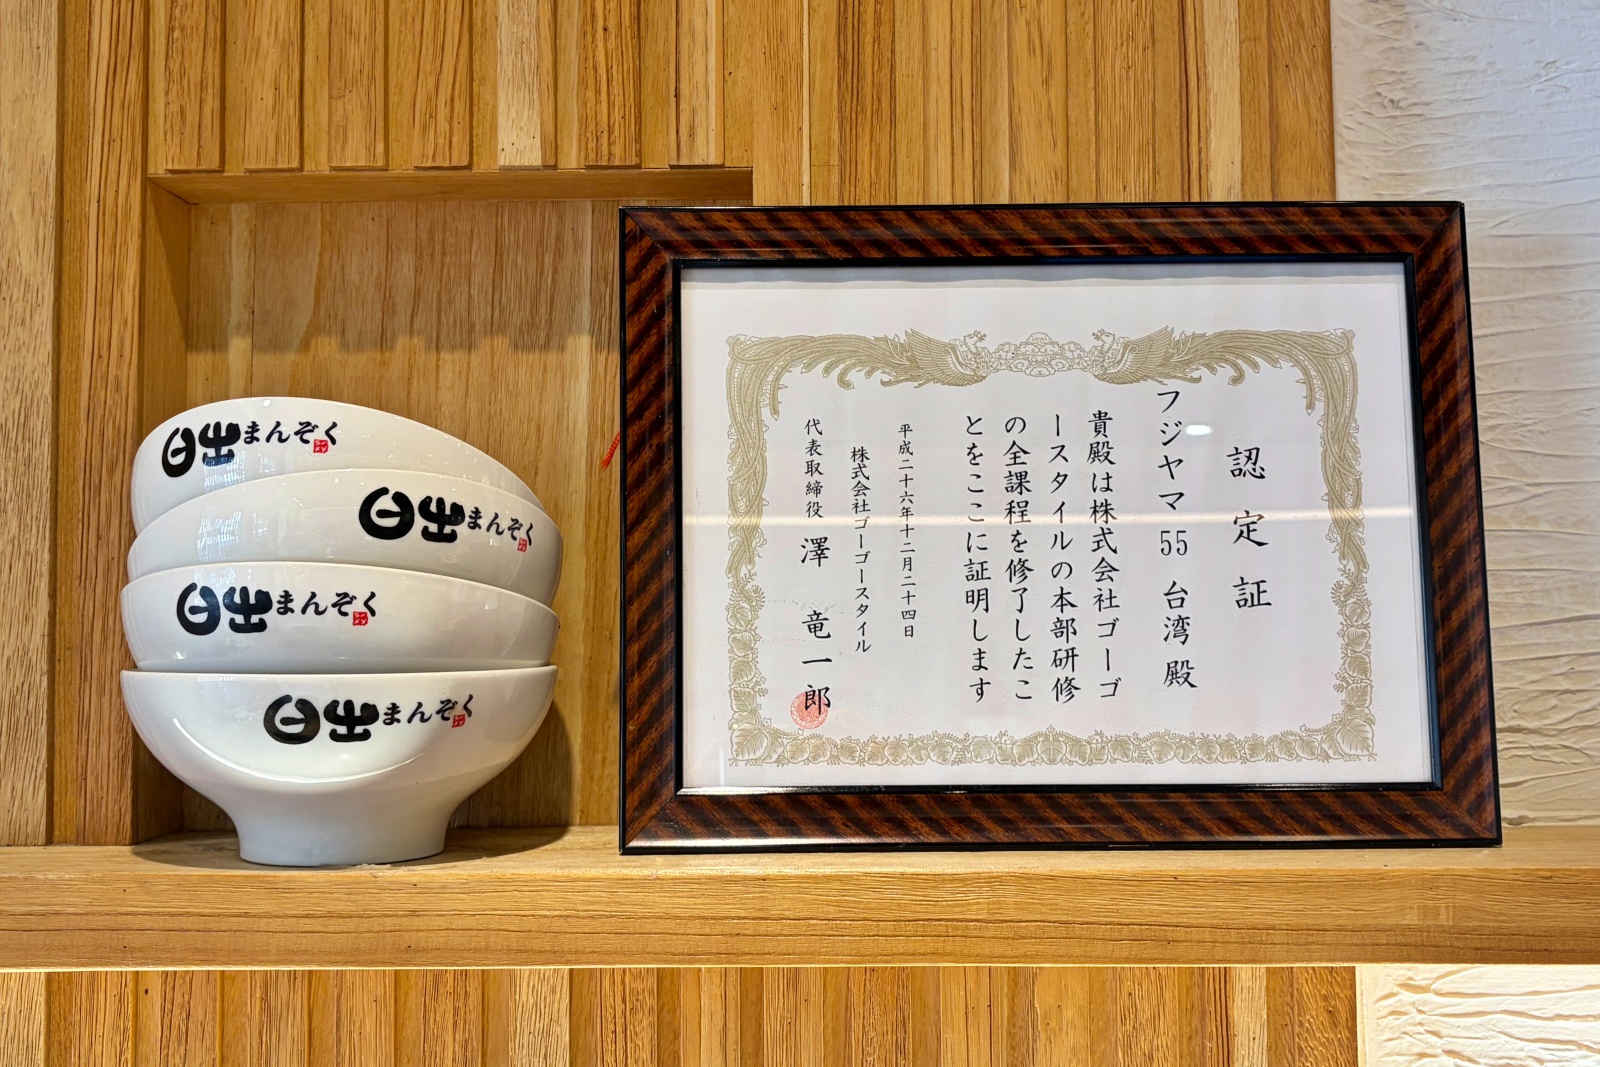 日出まんぞく
日出まんぞく
日出まんぞく
日出まんぞく
認定証
フジヤマ55 台湾 殿
貴殿は株式会社ゴーゴ
ースタイルの本部研修
の全課程を修了したこ
とをここに証明します
平成二十六年十二月二十四日
株式会社ゴーゴースタイル
代表取締役 澤 竜一郎